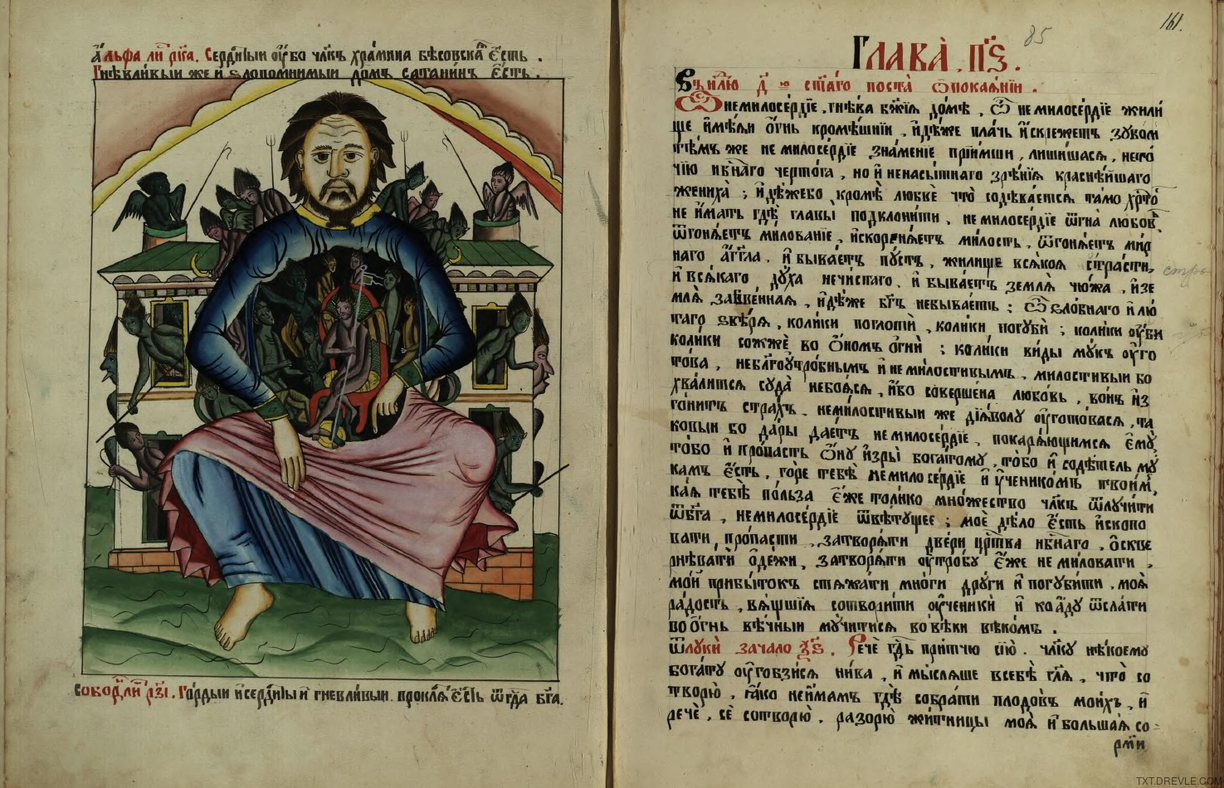 А҆льфа ли҇ рк҃а. Сердиⷮыи ѹ҆бо чл҃къ храмина бѣсовскаѧ є҆сть
Гнѣвливыи же и ѕлопомнимыи домъ сатанинъ є҆сть .
Собоⷬ҇ лиⷭ҇ рз҃і. Гордыи и҆ сердиⷮыи и҆ гневливыи. проклѧⷮ є҆сть ѿ гдⷭ҇а бг҃а.
161.
85
Глава̀ . п҃ѕ.
Въ нⷣлю д҃ ю ст҃а́го поста̀ ѡ҆ покаѧ́нїи .
Ѽ немилосе́рдїе , гнѣва бж҃їѧ до́ме , ѽ немилосе́рдїе жили
ще и҆мѣ́ѧи ѻ҆́гнь кромѣ́шнїи , и҆дѣ́же пла́чь и҆ скре́жетъ зубом
тѣ́мъ же немилосе́рдїе зна́менїе прїи́мши , лиши́шасѧ , не то́
чїю нбⷭ҇наго черто́га , но и҆ ненасы́тнаго зрѣ́нїѧ краснѣ́йшаго
жениха̀ ; и҆дѣ́же бо кромѣ̀ любвѐ что̀ содѣ́ваетсѧ та́мо хрⷭ҇то́
не и҆́мать гдѣ̀ главы̀ подклони́ти , немилосе́рдїе ѿгна̀ любо́вь
ѿгонѧ́етъ милова́нїе , и҆скоренѧ́етъ ми́лость , ѿгонѧ́етъ мир
наго а҆́гг҃ла , и҆ быва́етъ пу́стъ , жили́ще всѧ́коѧ стра́сти,
и҆ всѧ́каго дꙋ́ха нечи́стаго . и҆ быва́етъ землѧ̀ чю́жа , и҆ зе
млѧ̀ забве́ннаѧ , и҆дѣ́же бг҃ъ не быва́етъ ; Ѽ ѕло́бнаго и҆ лю́
таго ѕвѣ́рѧ , коли́ки поглотѝ , коли́ки погубѝ ; коли́ки ѹ҆бѝ
коли́ки сожжѐ во ѻ҆́номъ ѻ҆гнѝ ; коли́ки ви́ды му́къ ѹ҆го
това , неблагоѹтро́бнымъ и҆ неми́лостивымъ . ми́лостивыи бо
хва́литсѧ суда̀ не боѧ́сѧ , и҆́бо соверше́на любо́вь , во́нъ и҆з
гони́тъ стра́хъ . неми́лостивыи же дїѧ́волу ѹ҆гото́васѧ , та
ковыи бо да́ры дае́тъ немилосе́рдїе , покарѧ́ющимсѧ є҆мꙋ̀,
то́бо и҆ про́пасть ѻ҆́ну и҆зры̀ бога́тому , то́бо и҆ содѣ́тель му́
камъ є҆́сть , го́ре тебѣ̀ немилосе́рдїе и҆ ѹ҆ченико́мъ твои́мъ,
ка́ѧ тебѣ̀ по́льза є҆́же толи́ко мно́жество чл҃къ ѿлучи́ти
ѿ бг҃а , немилосе́рдїе ѿвѣ́тующее ; моѐ дѣ́ло є҆́сть и҆скопо
вати , про́пасти , затворѧ́ти две́ри црⷭ҇тва нбⷭ҇наго , ѻ҆скве
рнѣва́ти ѻ҆де́жи , затворѧ́ти ѹ҆тро́бу є҆́же не милова́ти ,
мо́й прибы́токъ стѧжа́ти мно́ги дру́ги и҆ погуби́ти . моѧ̀
ра́дость , вѧ́щшїѧ сотвори́ти ѹ҆ченикѝ и҆ ко а҆́ду ѿсла́ти
во ѻ҆́гнь вѣ́чныи му́читисѧ во вѣ́ки вѣко́мъ .
Ѿ лукѝ зача́ло ѯ҃ѕ. Речѐ гдⷭ҇ь при́тчю сїю̀ . чл҃ку нѣ́коему
бога́ту ѹ҆гобзи́сѧ ни́ва , и҆ мы́слѧше в себѣ̀ гл҃ѧ , что̀ со
творю̀ , ꙗ҆́ко не и҆́мамъ гдѣ̀ собра́ти плодо́въ мои́хъ , и҆
речѐ , сѐ сотворю̀ . разорю̀ жи́тницы моѧ̀ и҆ бо́льшаѧ со
TXT.DREVLE.COM